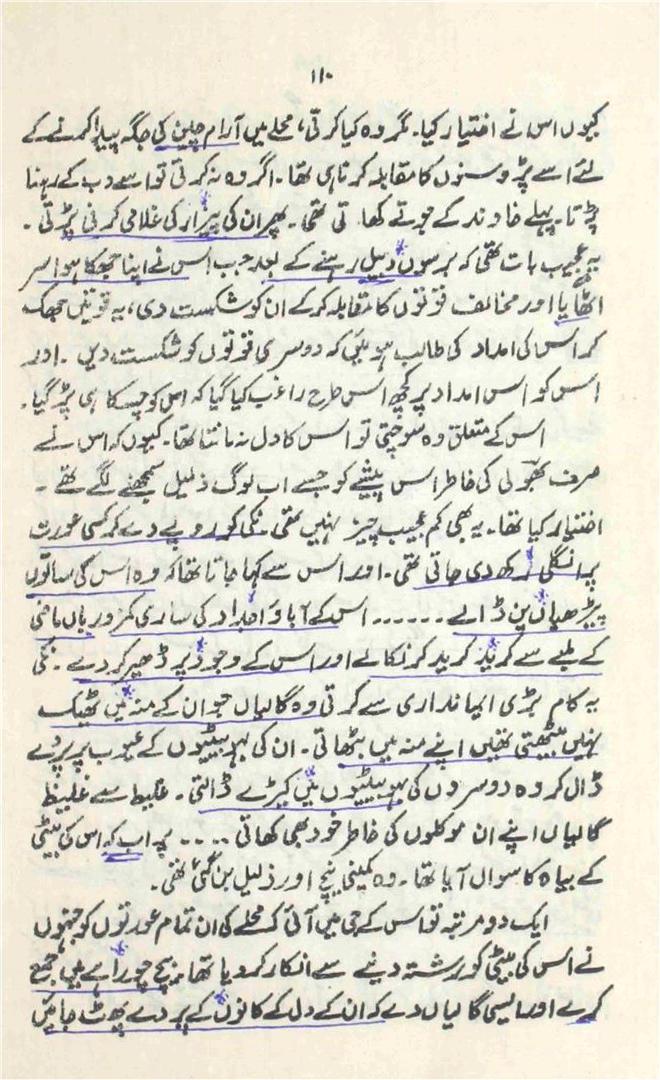 ۱۱۰
کیوں اس نے اختیار کیا۔ مگر وہ کیا کرتی، محلے میں آرام چین کی جگہ پیدا کرنے کے
لئے اسے پڑوسنوں کا مقابلہ کرنا ہی تھا۔ اگر وہ نہ کرتی تو اسے دب کے رہنا
پڑتا۔ پہلے خاوند کے جوتے کھاتی تھی۔ پھر ان کی پیزار کی غلامی کرنی پڑتی۔
یہ عجیب بات تھی کہ برسوں دبیل رہنے کے بعد جب اس نے اپنا جھکا ہوا سر
اٹھایا اور مخالف قوتوں کا مقابلہ کرکے ان کو شکست دی، یہ قوتیں جھک
کر اس کی امداد کی طالب ہوئیں کہ دوسری قوتوں کو شکست دیں۔ اور
اس کو اس امداد پر کچھ اس طرح راغب کیا گیا کہ اس کو چسکا ہی پڑ گیا۔
اس کے متعلق وہ سوچتی تو اس کا دل نہ مانتا تھا۔ کیوں کہ اس نے
صرف بھولی کی خاطر اس پیشے کو جسے اب لوگ ذلیل سمجھنے لگے تھے۔
اختیار کیا تھا۔ یہ بھی کم عجیب چیز نہیں تھی۔ نکی کو روپے دے کر کسی عورت
پر انگلی رکھ دی جاتی تھی۔ اور اس سے کہا جاتا تھا کہ وہ اس کی ساتوں
پیڑھیاں پن ڈالے ...... اس کے آباؤ اجداد کی ساری کمزوریاں ماضی
کے ملبے سے کرید کرید کر نکالے اور اس کے وجود پر ڈھیر کر دے۔ نکی
یہ کام بڑی ایمانداری سے کرتی وہ گالیاں جو ان کے منہ میں ٹھیک
نہیں بیٹھتی تھیں اپنے منہ میں بٹھاتی۔ ان کی بہو بیٹیوں کے عیوب پر پردے
ڈال کر وہ دوسروں کی بہو بیٹیوں میں کیڑے ڈالتی۔ غلیظ سے غلیظ
گالیاں اپنے ان موکلوں کی خاطر خود بھی کھاتی .... پر اب کہ اس کی بیٹی
کے بیاہ کا سوال آیا تھا۔ وہ کمینی نیچ اور ذلیل بن گئی تھی۔
ایک دو مرتبہ تو اس کے جی میں آئی کہ محلے کی ان تمام عورتوں کو جنہوں
نے اس کی بیٹی کو رشتہ دینے سے انکار کر دیا تھا بیچ چوراہے میں جمع
کرے اور ایسی گالیاں دے کہ ان کے دل کے کانوں کے پردے پھٹ جائیں